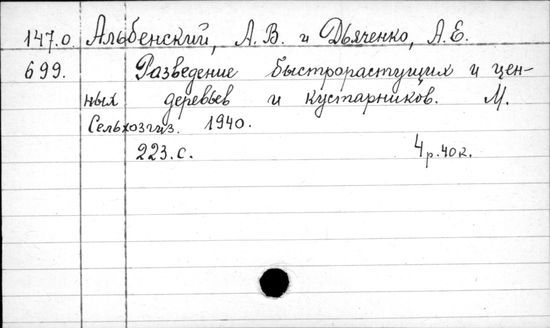 147.0 Альбенский, А. В. и Дьяченко, А. Е.
699. Разведение быстрорастущих и цен-
ных деревьев и кустарников. М.
Сельхозгиз. 1940.
223. с. 4 р. 40 к.